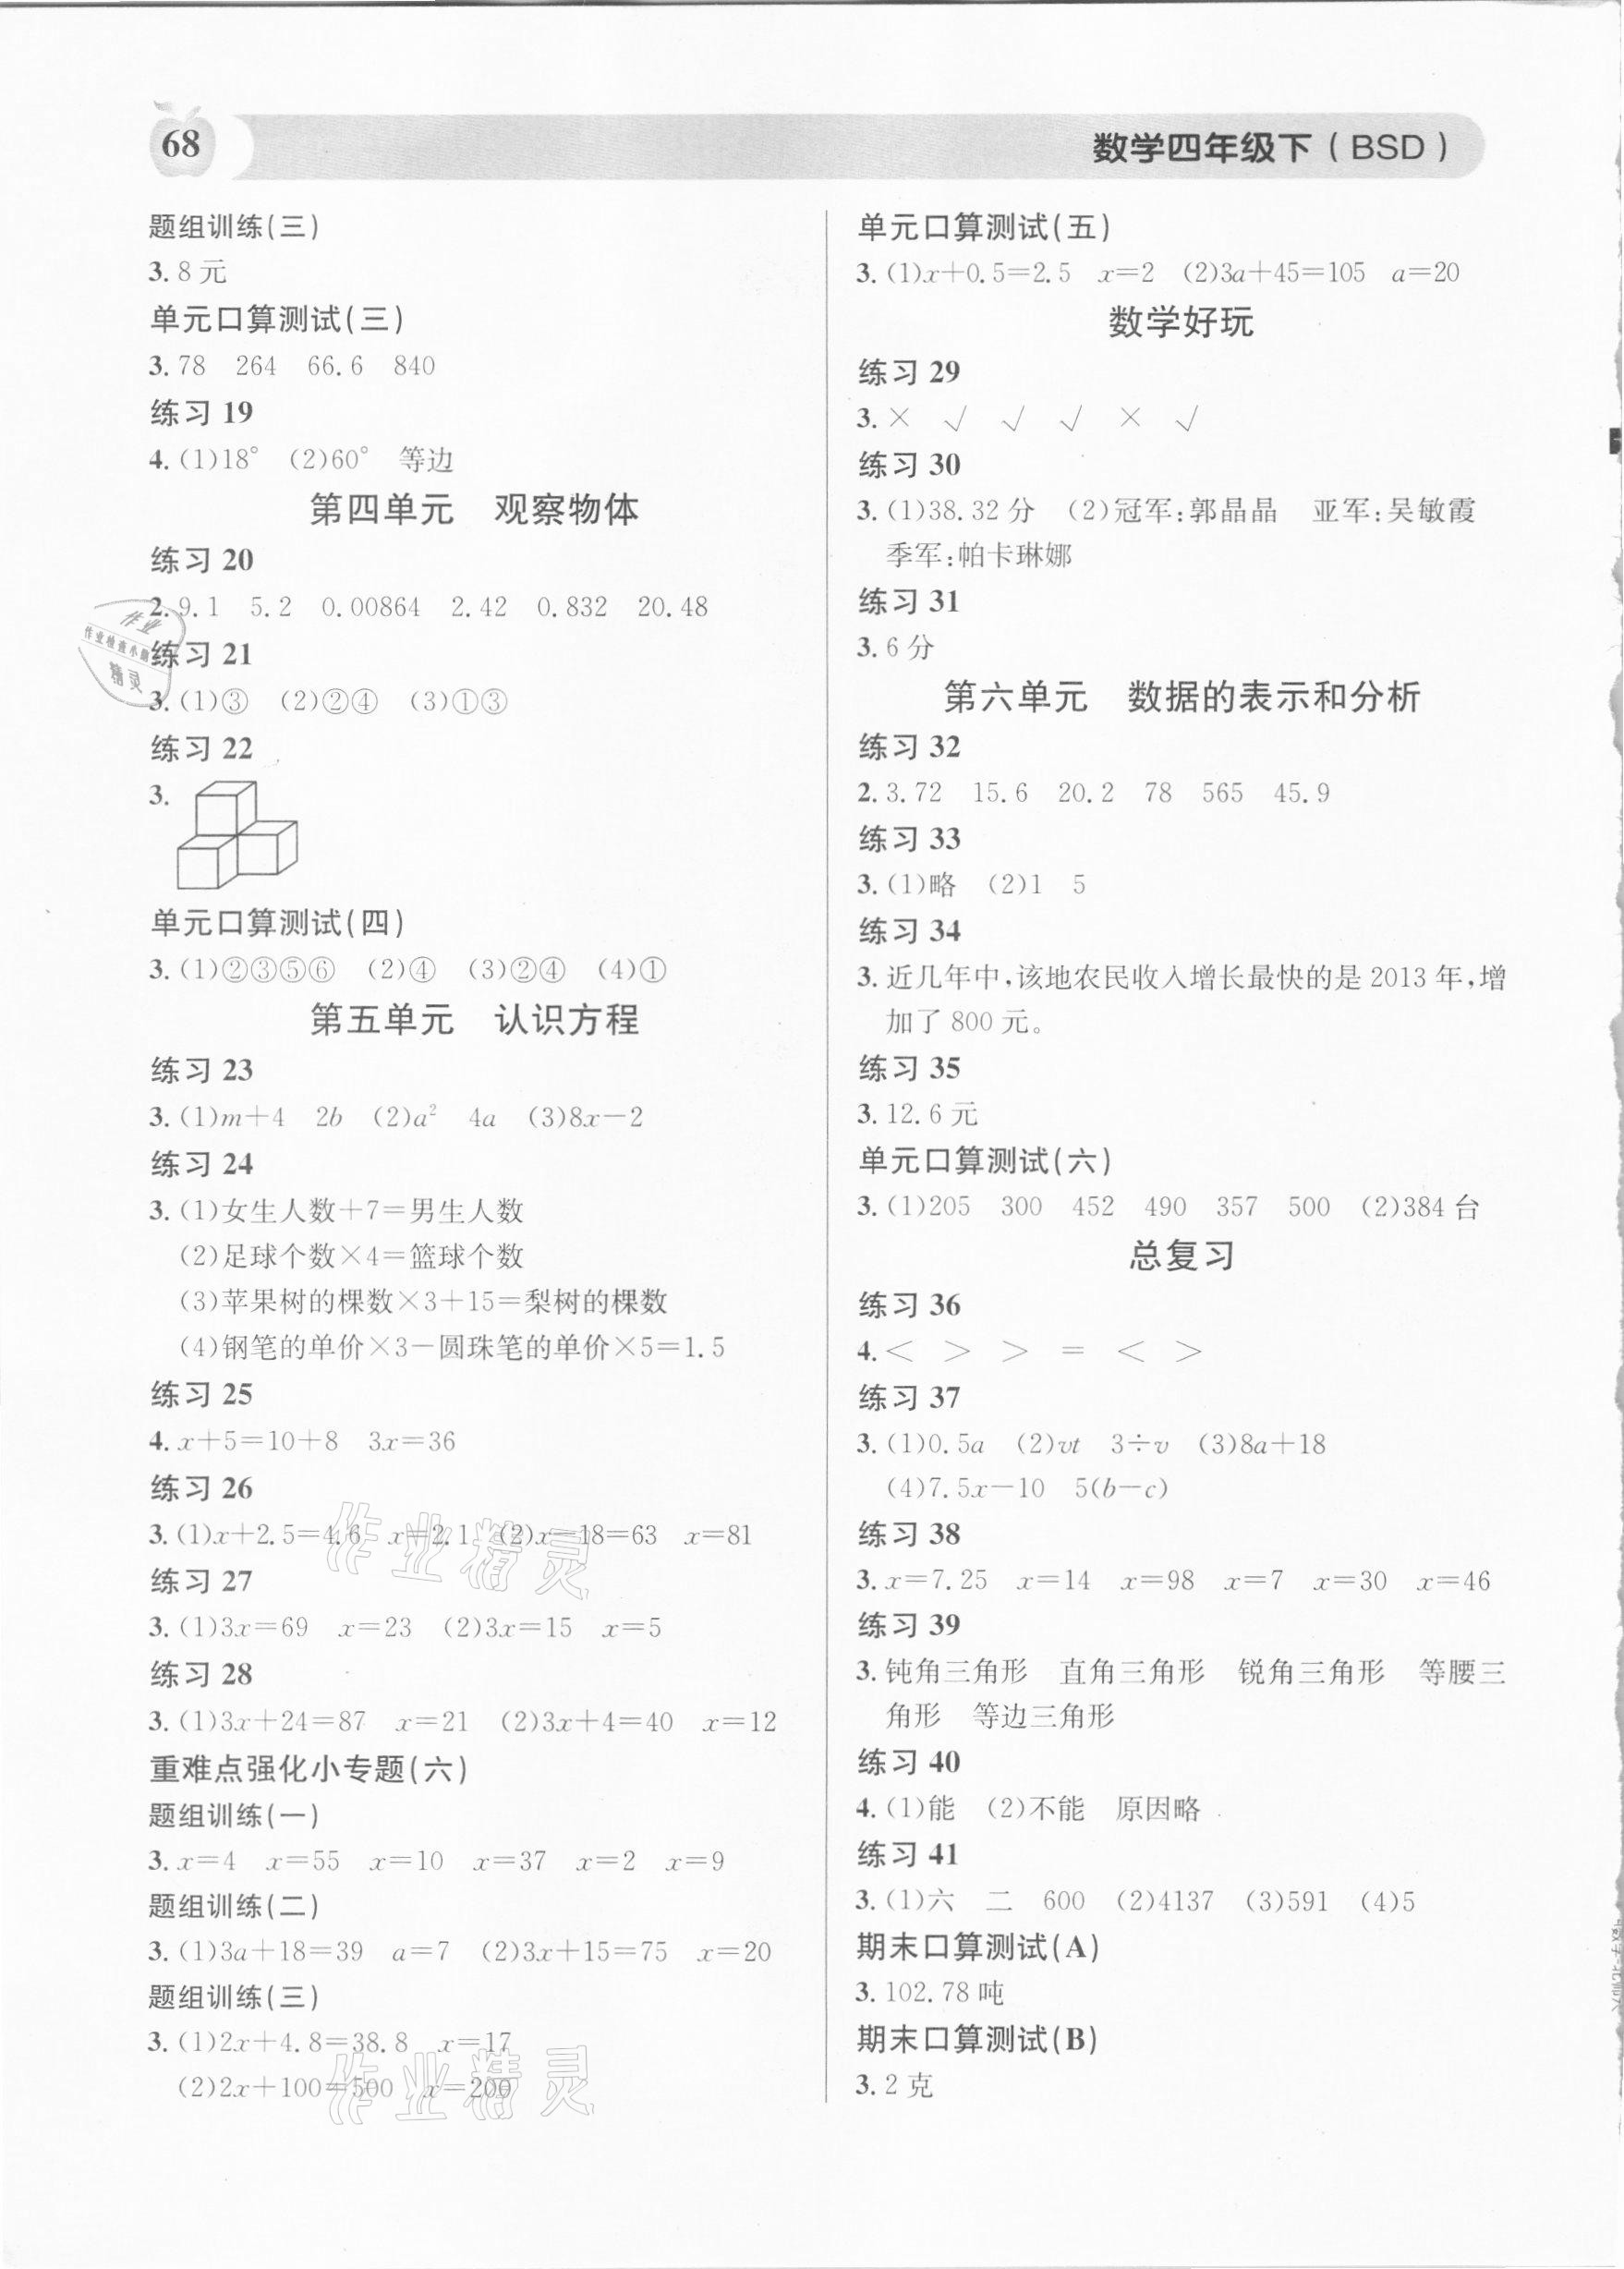 68
数学四年级下（BSD）
题组训练(三)
3. 8元
单元口算测试(三)
3. 78 264 66.6 840
练习 19
4. (1)18° (2)60° 等边
第四单元 观察物体
练习 20
2. 9.1 5.2 0.00864 2.42 0.832 20.48
练习 21
3. (1)③ (2)②④ (3)①③
练习 22
3.
单元口算测试(四)
3. (1)②③⑤⑥ (2)④ (3)②④ (4)①
第五单元 认识方程
练习 23
3. (1)m+4 2b (2)a² 4a (3)8x-2
练习 24
3. (1)女生人数+7=男生人数
(2)足球个数×4=篮球个数
(3)苹果树的棵数×3+15=梨树的棵数
(4)钢笔的单价×3-圆珠笔的单价×5=1.5
练习 25
4. x+5=10+8 3x=36
练习 26
3. (1)x+2.5=4.6 x=2.1 (2)x-18=63 x=81
练习 27
3. (1)3x=69 x=23 (2)3x=15 x=5
练习 28
3. (1)3x+24=87 x=21 (2)3x+4=40 x=12
重难点强化小专题(六)
题组训练(一)
3. x=4 x=55 x=10 x=37 x=2 x=9
题组训练(二)
3. (1)3a+18=39 a=7 (2)3x+15=75 x=20
题组训练(三)
3. (1)2x+4.8=38.8 x=17
(2)2x+100=500 x=200
单元口算测试(五)
3. (1)x+0.5=2.5 x=2 (2)3a+45=105 a=20
数学好玩
练习 29
3. × √ √ √ × √
练习 30
3. (1)38.32分 (2)冠军:郭晶晶 亚军:吴敏霞
季军:帕卡琳娜
练习 31
3. 6分
第六单元 数据的表示和分析
练习 32
2. 3.72 15.6 20.2 78 565 45.9
练习 33
3. (1)略 (2)1 5
练习 34
3. 近几年中,该地农民收入增长最快的是 2013 年,增
加了 800 元。
练习 35
3. 12.6 元
单元口算测试(六)
3. (1)205 300 452 490 357 500 (2)384 台
总复习
练习 36
4. < > > = < >
练习 37
3. (1)0.5a (2)vt 3÷v (3)8a+18
(4)7.5x-10 5(b-c)
练习 38
3. x=7.25 x=14 x=98 x=7 x=30 x=46
练习 39
3. 钝角三角形 直角三角形 锐角三角形 等腰三
角形 等边三角形
练习 40
4. (1)能 (2)不能 原因略
练习 41
3. (1)六 二 600 (2)4137 (3)591 (4)5
期末口算测试(A)
3. 102.78 吨
期末口算测试(B)
3. 2 克
作业
精灵
作业精灵
作业精灵